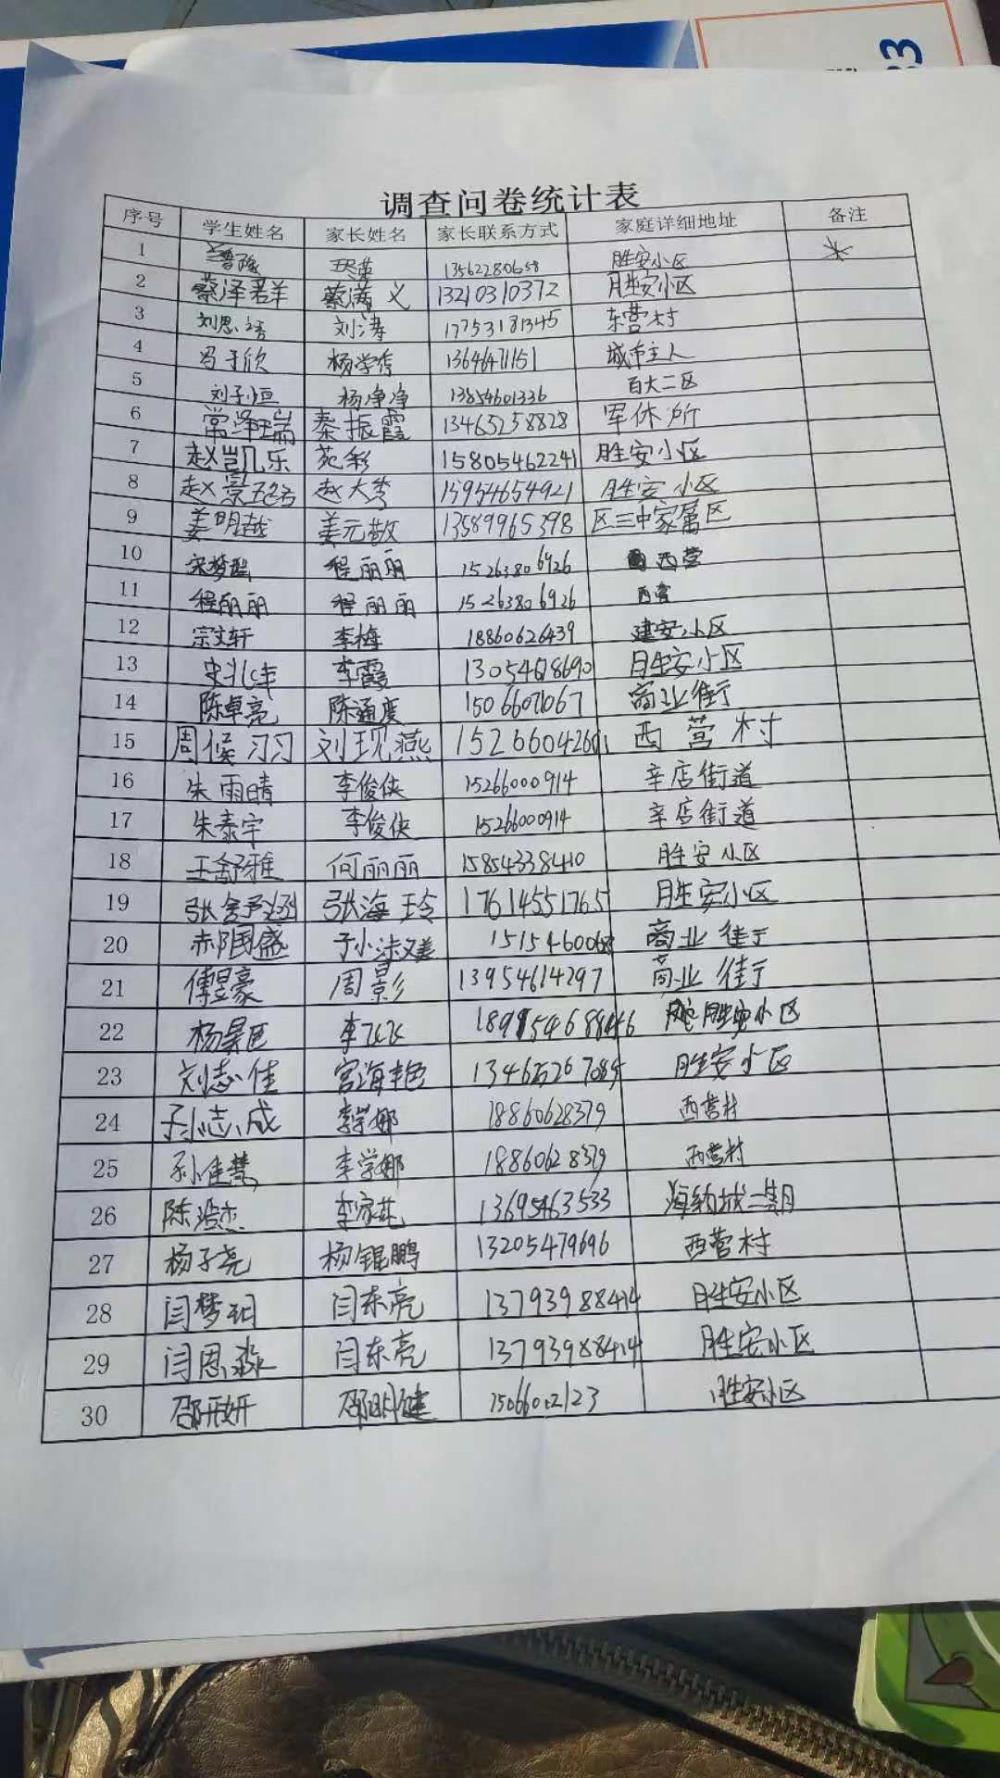 33
调查问卷统计表
序号 学生姓名 家长姓名 家长联系方式 家庭详细地址 备注
1 13562280658 胜安小区
2 蔡泽群 蔡满义 13210310372 胜安小区
3 刘思 刘涛 17753181345 东营村
4 冯于欣 杨学香 13646471151 城市主人
5 刘子恒 杨净净 13854601336 百大二区
6 常泽瑞 秦振霞 13465258828 军休所
7 赵凯乐 苑彩 15805462241 胜安小区
8 赵崇 赵大秀 13954654921 胜安小区
9 姜明越 姜元敬 13589965398 区三中家属区
10 宋梦 程丽丽 15263806926 西营
11 程丽丽 程丽丽 15263806926 西营
12 宗文轩 李梅 18860626439 建安小区
13 史兆丰 李霞 13054618690 胜安小区
14 陈卓亮 陈通度 15066071067 商业街
15 周候习习 刘现燕 1526604260 西营村
16 朱雨晴 李俊侠 15266000914 辛店街道
17 朱泰宇 李俊侠 15266000914 辛店街道
18 王舒雅 何丽丽 15854338410 胜安小区
19 张舒涵 张海玲 17614551765 胜安小区
20 郝国盛 1515460068 商业街
21 傅昱豪 周影 13954614297 商业街
22 杨景 李飞飞 胜安小区
23 刘志佳 宫海艳 胜安小区
24 孙志成 李学娜 18860628379 西营村
25 孙佳慧 李学娜 18860628379 西营村
26 陈浩杰 李家花 13695463533 海纳城二期
27 杨子尧 杨锟鹏 13205479696 西营村
28 闫梦玥 闫东亮 13793988414 胜安小区
29 闫思淼 闫东亮 13793988414 胜安小区
30 邵开妍 邵明健 15066002123 胜安小区